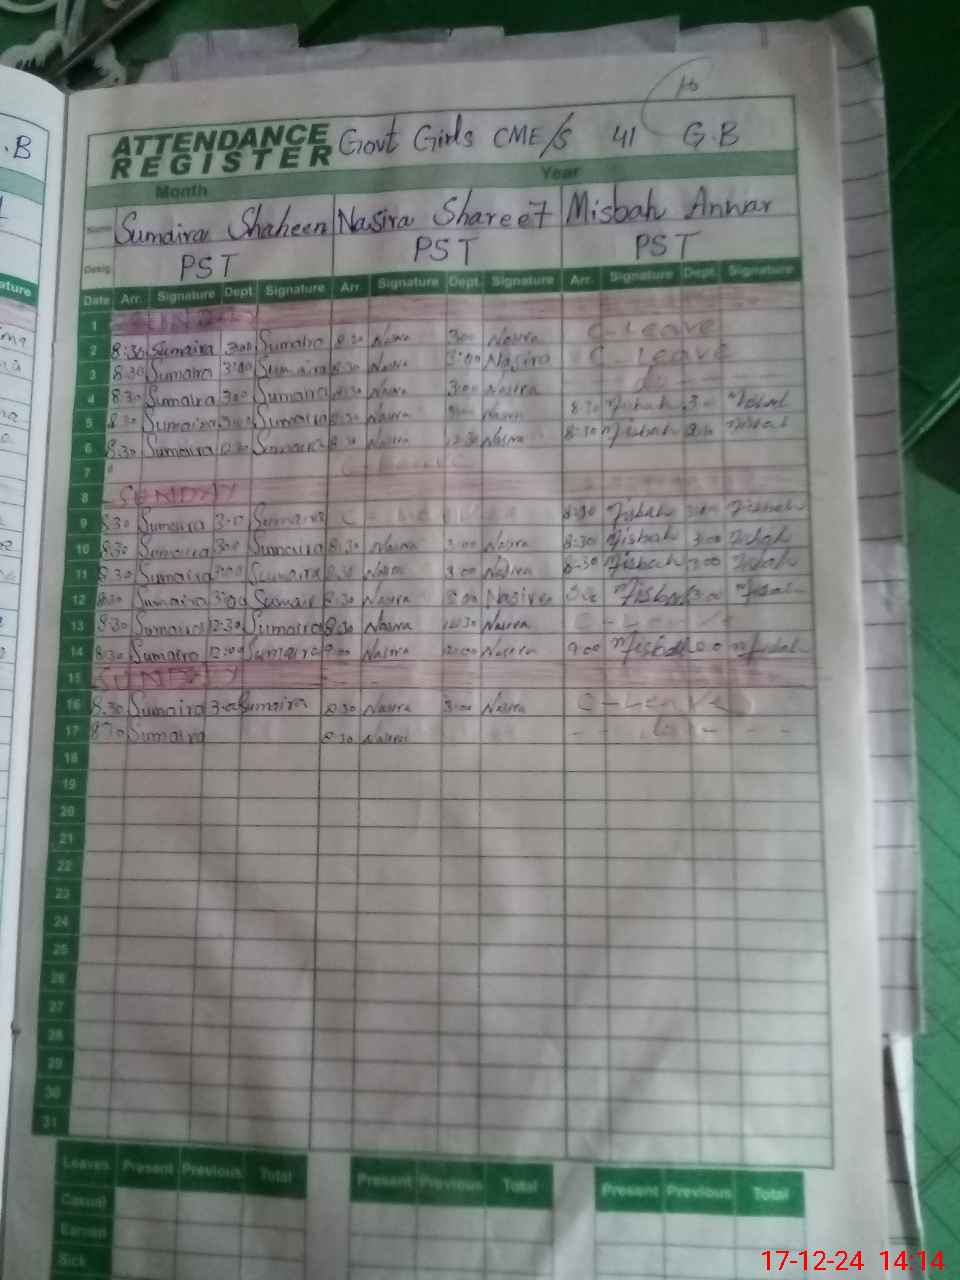 .B
ATTENDANCE
REGISTER
Govt Girls CME/S 41 G.B
Month Year
Name Sumaira Shaheen Nasira Shareef Misbah Anwar
Desig. PST PST PST
ature
Date Arr. Signature Dept. Signature Arr. Signature Dept. Signature Arr. Signature Dept. Signature
1 SUNDAY
2 8:30 Sumaira 3:00 Sumaira 8:30 Nasira 3:00 Nasira C-Leave
3 8:30 Sumaira 3:00 Sumaira 8:30 Nasira 3:00 Nasira C-Leave
4 8:30 Sumaira 3:00 Sumaira 8:30 Nasira 3:00 Nasira do
5 8:30 Sumaira 3:00 Sumaira 8:30 Nasira 3:00 Nasira 8:30 Misbah 3:00 Misbah
6 8:30 Sumaira 12:30 Sumaira 8:30 Nasira 12:30 Nasira 8:30 Misbah Misbah
7 C-Leave
8 SUNDAY
9 8:30 Sumaira 3:00 Sumaira C-Leave 8:30 Misbah 3:00 Misbah
10 8:30 Sumaira 3:00 Sumaira 8:30 Nasira 3:00 Nasira 8:30 Misbah 3:00 Misbah
11 8:30 Sumaira 3:00 Sumaira 8:30 Nasira 3:00 Nasira 8:30 Misbah 3:00 Misbah
12 8:30 Sumaira 3:00 Sumaira 8:30 Nasira 3:00 Nasira Misbah 3:00 Misbah
13 8:30 Sumaira 12:30 Sumaira 8:30 Nasira 12:30 Nasira C-Leave
14 8:30 Sumaira 12:00 Sumaira 9:00 Nasira 12:00 Nasira 9:00 Misbah Misbah
15 SUNDAY
16 8:30 Sumaira 3:00 Sumaira 8:30 Nasira 3:00 Nasira C-Leave
17 8:30 Sumaira 8:30 Nasira - - do - - - -
18
19
20
21
22
23
24
25
26
27
28
29
30
31
Leaves Present Previous Total Present Previous Total Present Previous Total
Casual
Earned
Sick
17-12-24 14:14